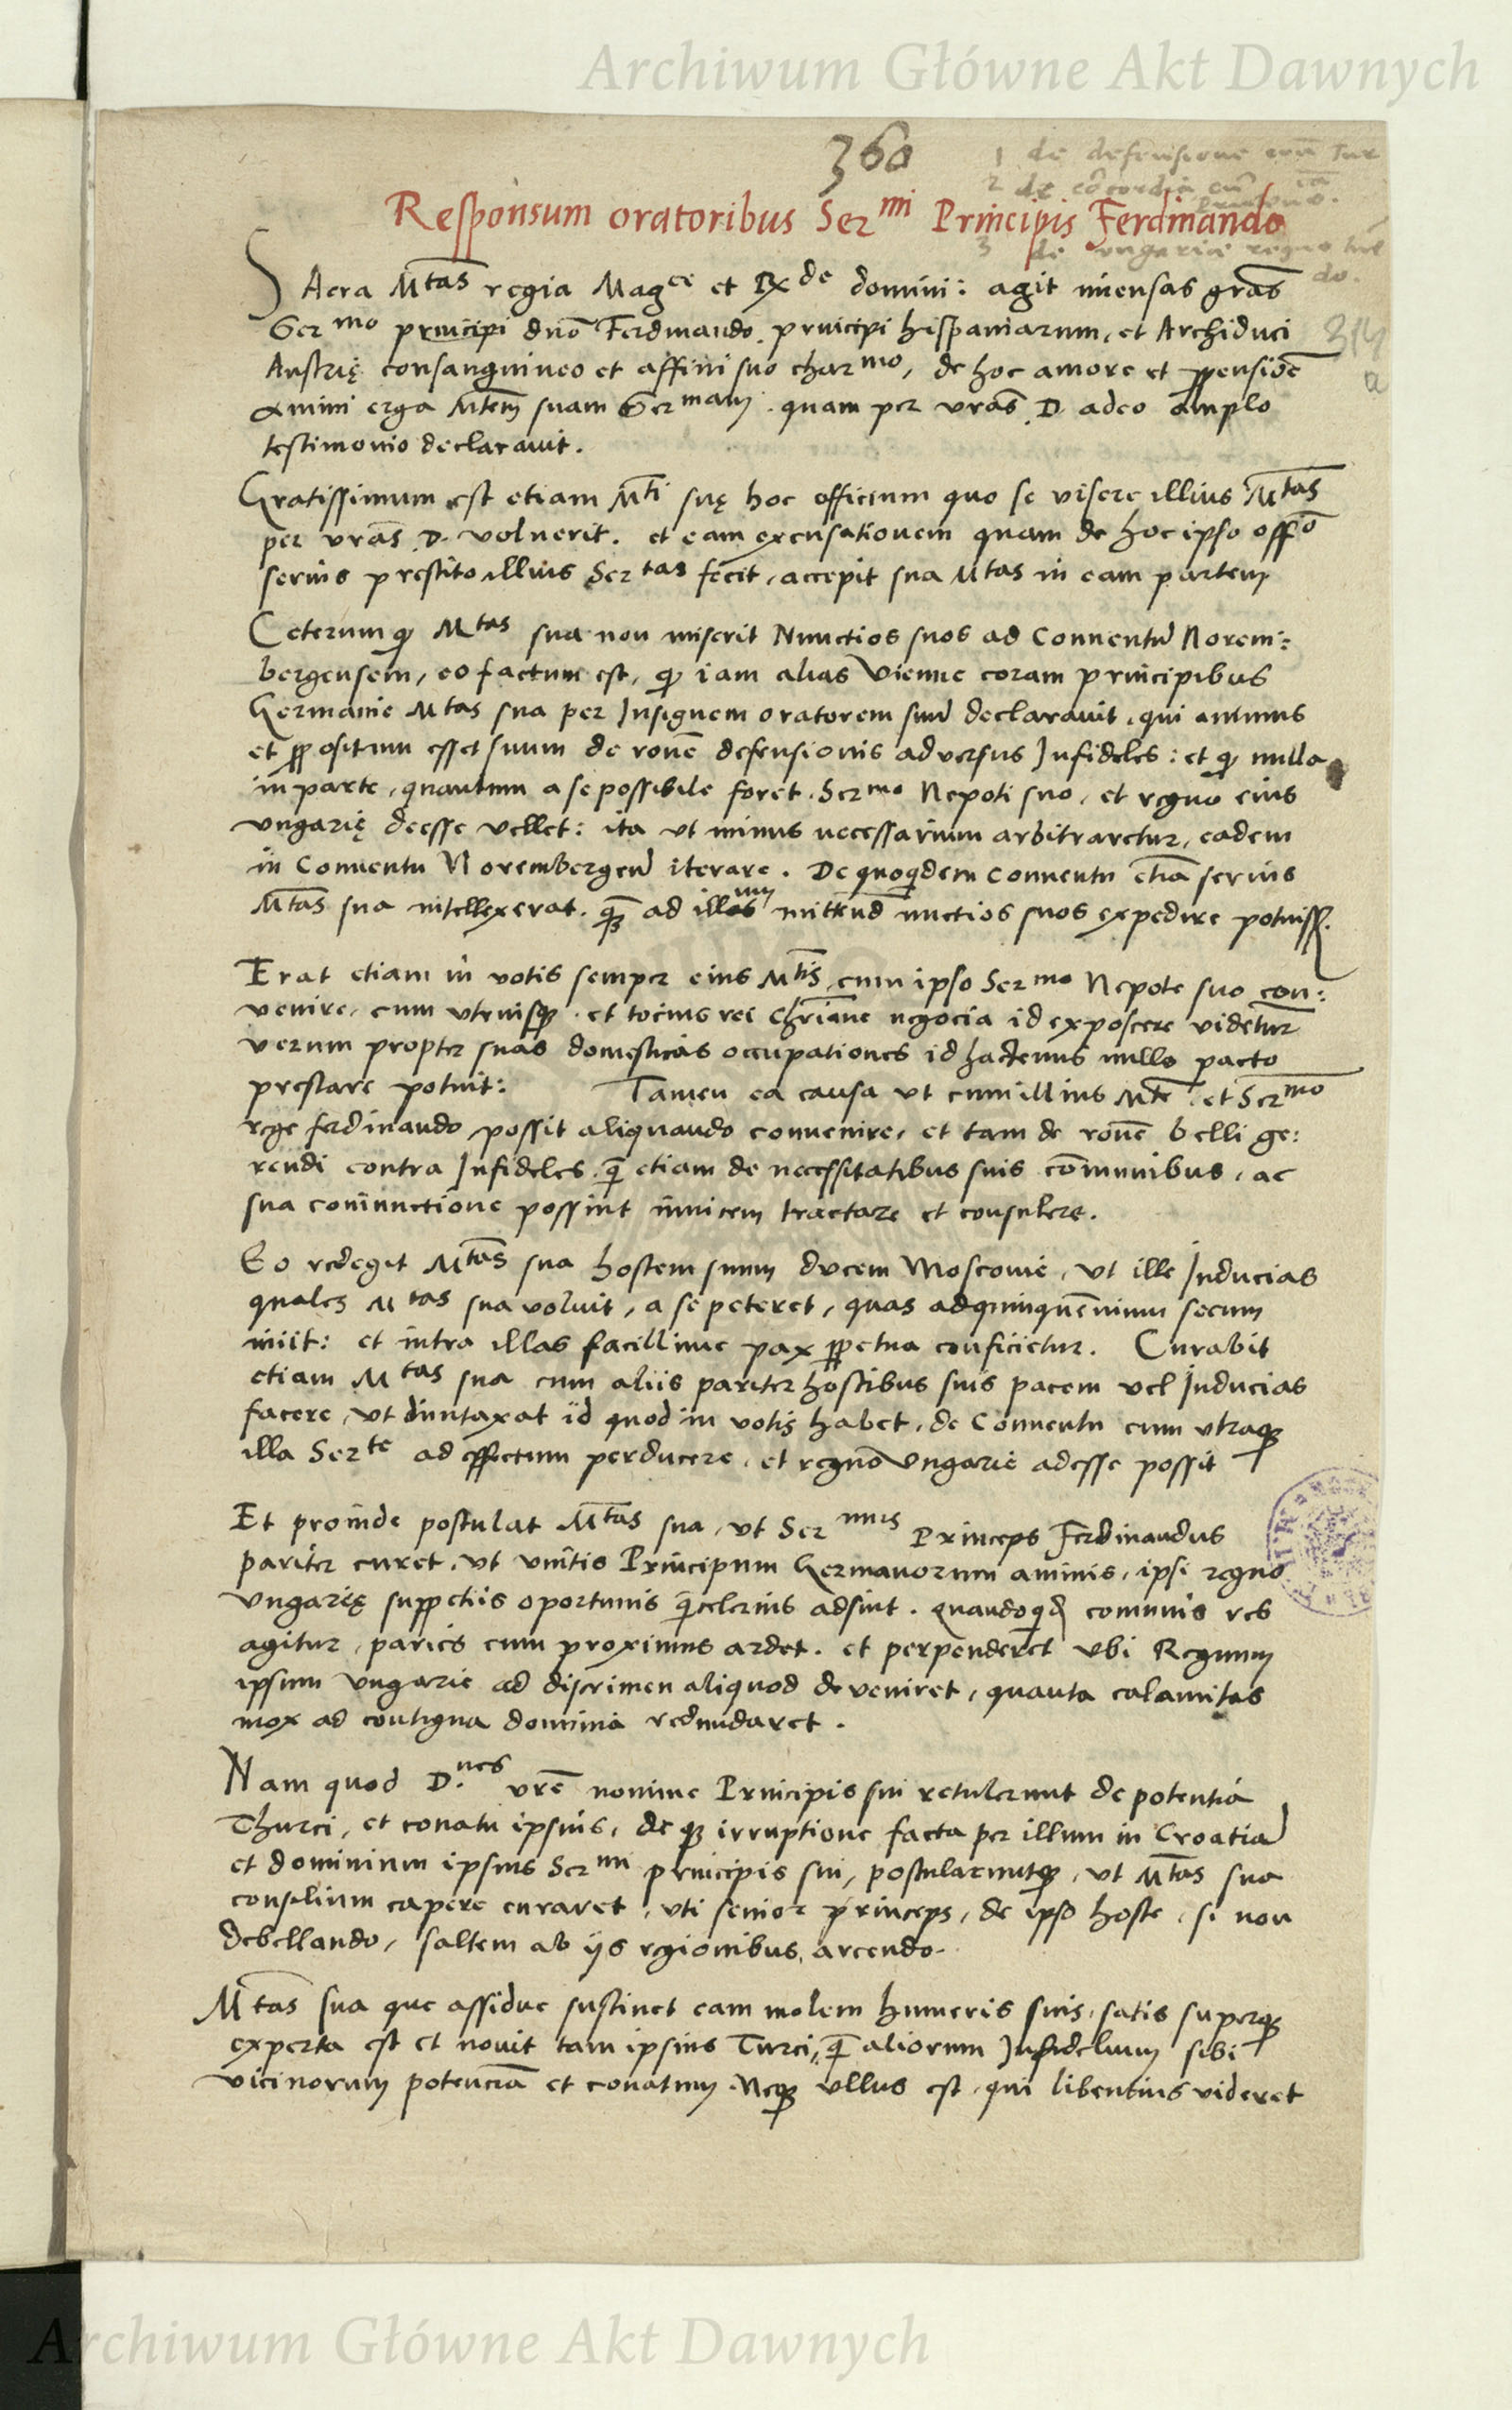 Archiwum Główne Akt Dawnych
360
1 de defensione
2 de cōcordia cū
3 de ungariæ regno
do.
Responsum oratoribus Ser mi Principis Ferdinando
SAcra Mtas regia Magce et Rxde domini: agit imensas gras
Ser mo principi dno Ferdinando. principi hispaniarum, et Archiduci
Austrię consanguineo et affini suo char mo, de hoc amore et ppensiōe
animi erga Mtem suam Ser mam. quam per vras D. adeo amplo
testimonio declaravit.
Gratissimum est etiam Mti suę hoc officium quo se visere illius Mtas
per vras D. voluerit. et eam excusationem quam de hoc ipso offo
serius prestito illius Ser tas fecit, accepit sua Mtas in eam partem
Ceterum q Mtas sua non miserit Nunctios suos ad Conventu Norem:
bergensem, eo factum est, q iam alias Vienne coram principibus
Germanie Mtas sua per Insignem oratorem suu declaravit, qui animus
et ppositum esset suum de rone defensionis adversus Infideles: et q nulla
in parte, quantum a se possibile foret, Ser mo Nepoti suo, et regno eius
vngarię deesse vellet: ita ut minus necessarium arbitraretur, eadem
in Conventu Norembergen iterare. De quoqdem conventu etia serius
Mtas sua intellexerat. q ad illum mittend nuctios suos expedire potuiss.
Erat etiam in votis semper eius Mtis, cum ipso Ser mo Nepote suo con:
venire, cum vtriusq et tocius rei Chriane negocia id exposcere videtur
verum propter suas domesticas occupationes id hactenus nullo pacto
prestare potuit: Tamen ea causa ut cum illius Mte et Ser mo
rege ferdinando possit aliquando convenire, et tam de rone belli ge:
rendi contra Infideles, q etiam de necessitatibus suis comunibus, ac
sua coniunctione possint invicem tractare et consulere.
Eo redegit Mtas sua hostem suum ducem Moscovie, ut ille Inducias
quales Mtas sua voluit, a se peteret, quas ad quinquēnnium secum
iniit: et intra illas facillime pax ppetua conficietur. Curabit
etiam Mtas sua cum aliis pariter hostibus suis pacem vel Inducias
facere, ut duntaxat id quod in votis habet, de Conventu cum utraq
illa Ser te ad effectum perducere, et regno Vngarie adesse possit
Et proinde postulat Mtas sua, ut Ser mus Princeps Ferdinandus
pariter curet, ut vnitis Principum Germanorum animis, ipsi regno
vngarię suppetiis oportunis q celerius adsint. quandoqd comunis res
agitur, paries cum proximus ardet. et perpenderet ubi Regnum
ipsum vngarie ad discrimen aliquod deveniret, quanta calamitas
mox ad contigua dominia redundaret.
Nam quod D. nes vre nomine Principis sui retulerunt de potentia
Thurci, et conatu ipsius, de q irruptione facta per illum in Croatia
et dominium ipsius Ser mi principis sui, postularuntq, ut Mtas sua
consilium capere curaret, uti senior princeps, de ipso hoste, si non
debellando, saltem ab iis regionibus arcendo.
Mtas sua que assidue sustinet eam molem humeris suis, satis superq
experta est et novit tam ipsius Turci, q aliorum Infidelium sibi
vicinorum potencia et conatum. Neq ullus est, qui libentius videret
Archiwum Główne Akt Dawnych